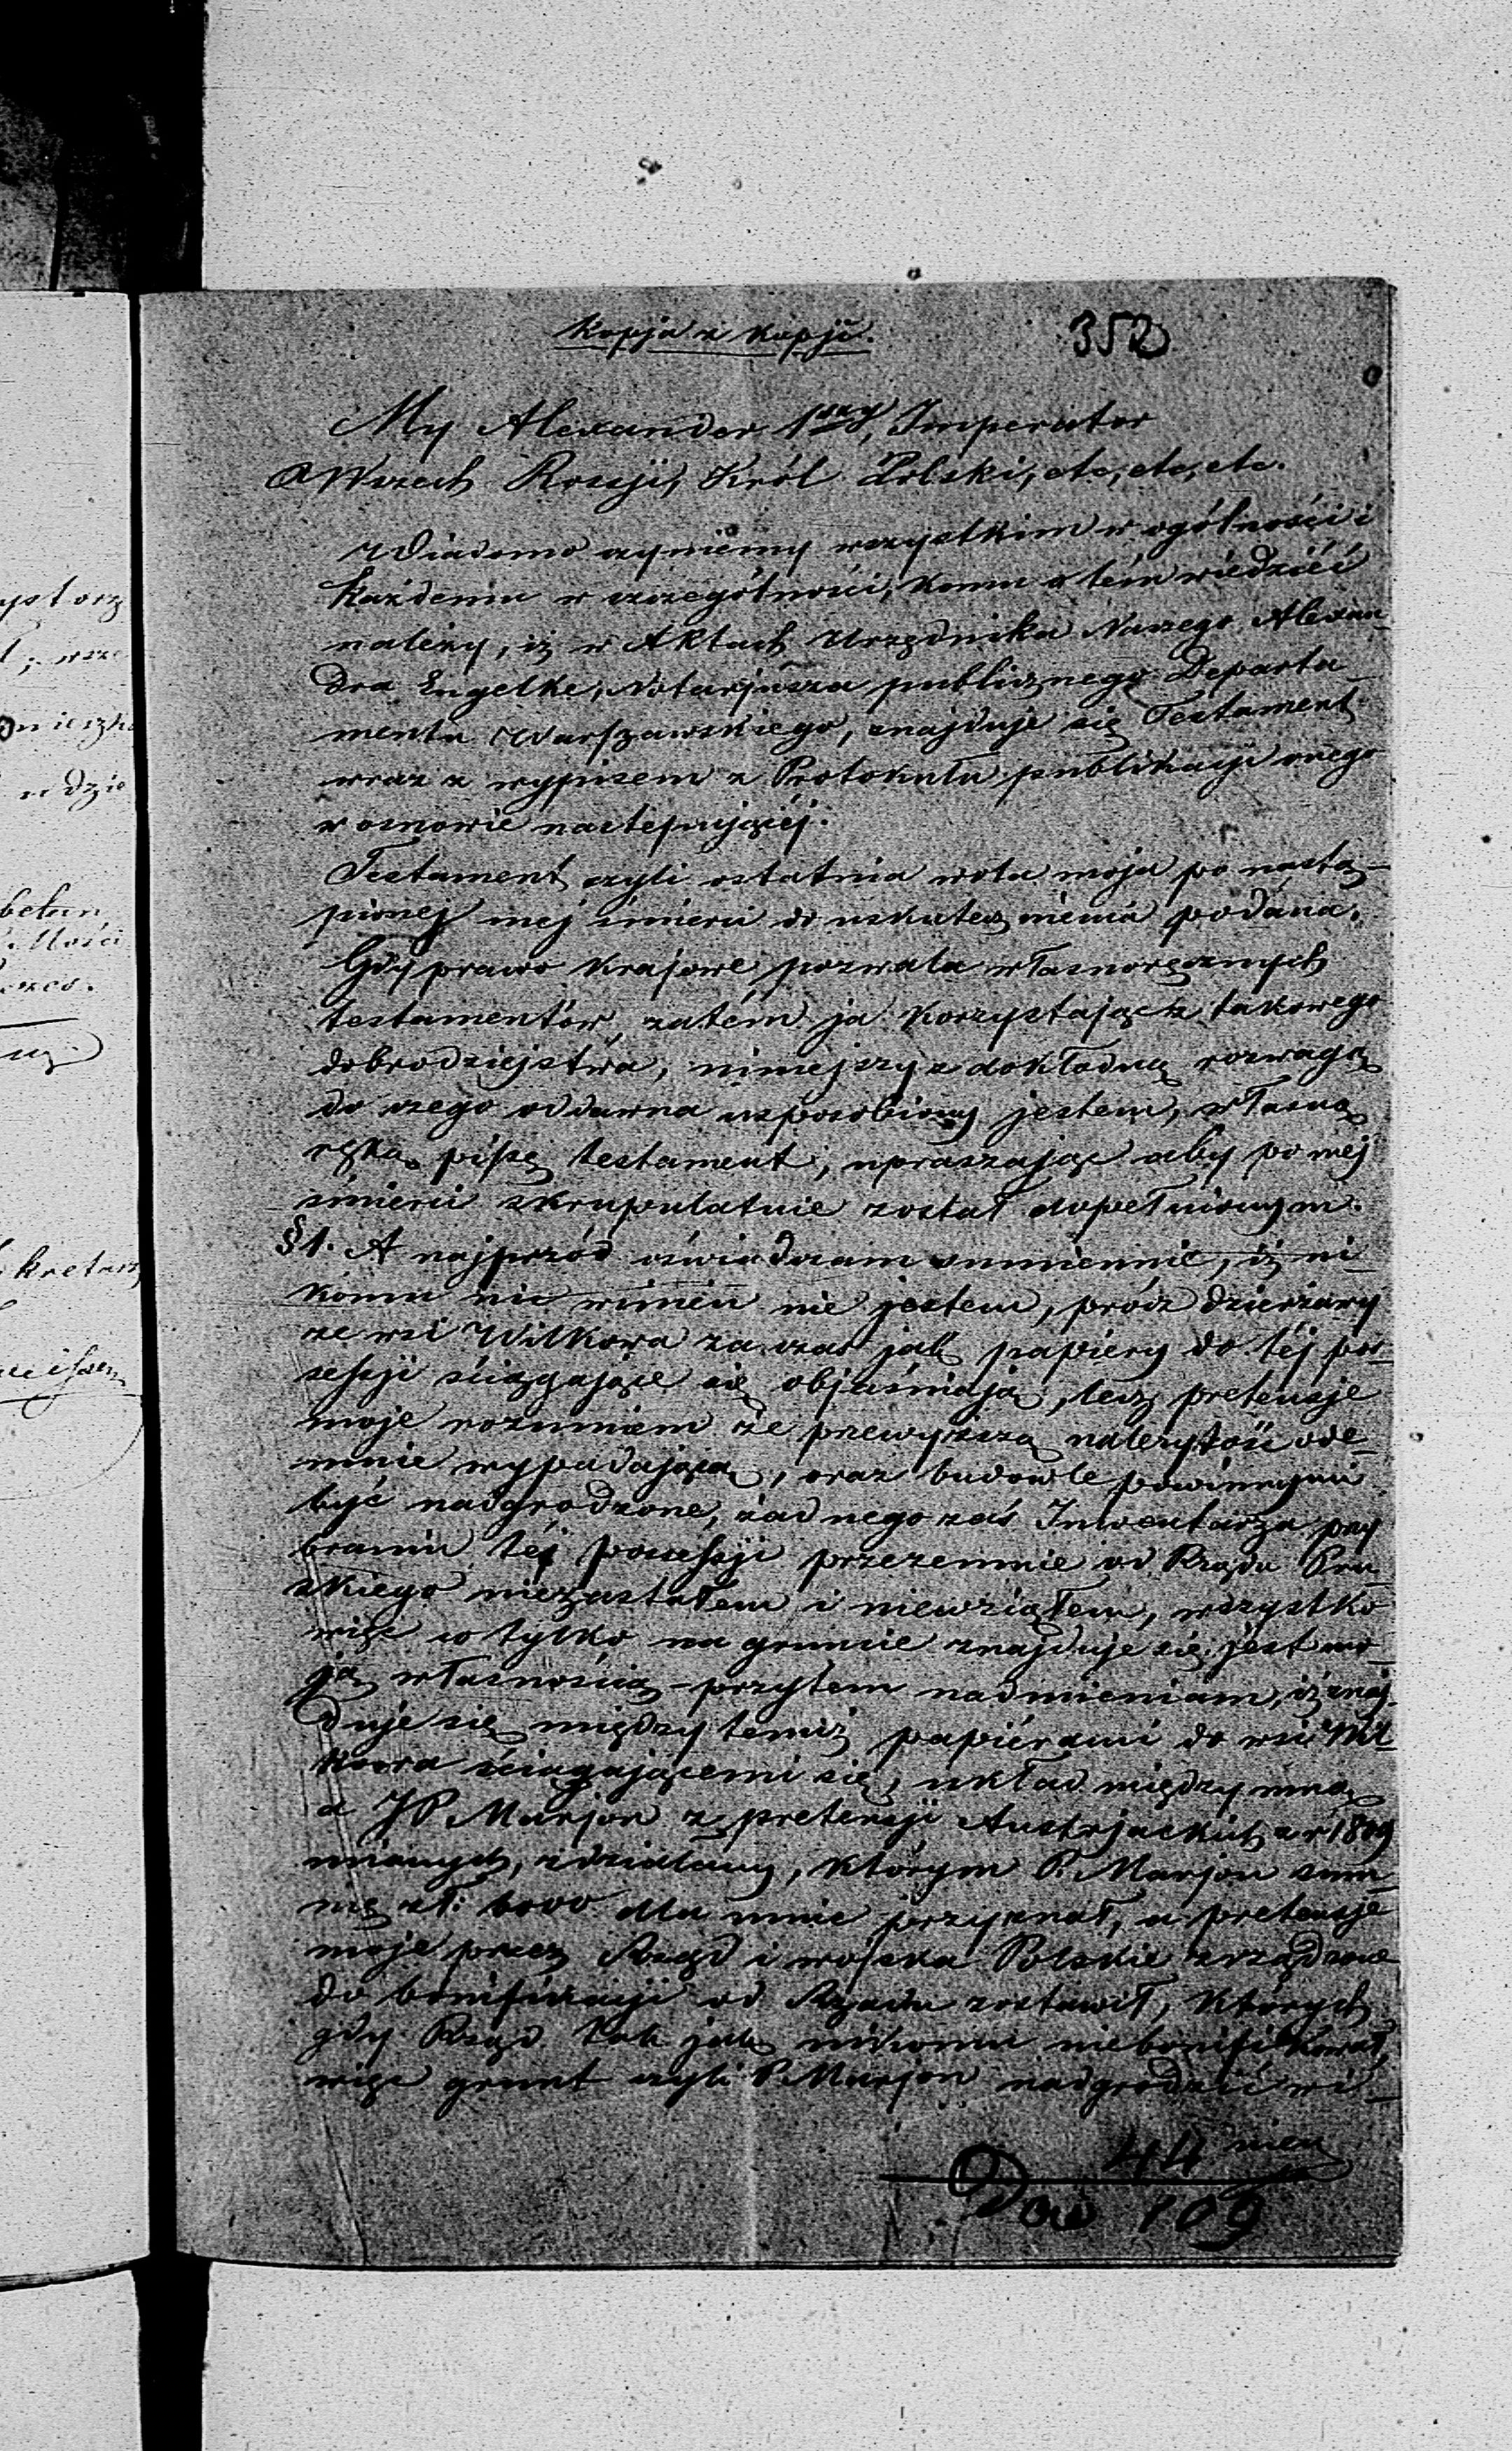 Kopja z kopji.
352
My Alexander 1szy, Imperator
Wszech Rossji, Król Polski, etc, etc, etc.
Wiadomo czyniemy wszystkim w ogólności i
każdemu w szczególności, komu o tém wiedziéć
należy, iż w Aktach Urzędnika Naszego Alexan-
dra Engelke, Notarjusza publicznego Departa-
mentu Warszawskiego, znajduje się Testament
wraz z wypisem z Protokułu publikacji onego
w osnowie następującéj.
Testament czyli ostatnia wola moja po nastą-
pionej mej śmierci do uskutecznienia podána.
Gdy prawo krajowe pozwala własnoręcznych
testamentów, zatém ja korzystając z takowego
dobrodziejstwa, niniejszy z dokładną rozwagą
do czego oddawna usposobiony jestem, własną
ręką piszę testament, upraszając aby po mej
śmierci skrupulatnie został dopełnionym.
§1. A najprzód oświadczam sumiennie, iż ni-
komu nic winien nie jestem, prócz dzierżawy
ze wsi Wilkowa za czas jak papiéry do téj pos-
sessji ściągające się objaśniają, lecz pretensje
moje rozumiem że przewyższą należytość ode-
mnie wypadającą, oraz budowle powinny mi
być nadgrodzone, żadnego zaś Inwentarza przy
braniu téj possessji przezemnie od Rządu Pru-
skiego niezastałem i niewziąłem, wszystko
więc co tylko na gruncie znajduje się jest mo-
ją własnością - przytem nadmieniam, iż znaj-
duje się między temiż papiérami do wsi Wil-
kowa ściągającemi się, układ między mną
a JP. Marjon z pretensji Austrjackich z r 1809
mianych, zdziałany, którym P. Marjon sum-
mę zł: 6000 dla mnie przyznał, a pretensje
moje przez Rząd i wojska Polskie zrządzone
do bonifikacji od Rządu zostawił, których
gdy Rząd tak jak nikomu niebonifikował,
więc grunt czyli P. Marjon nadgrodzić wi-
nien
44
109